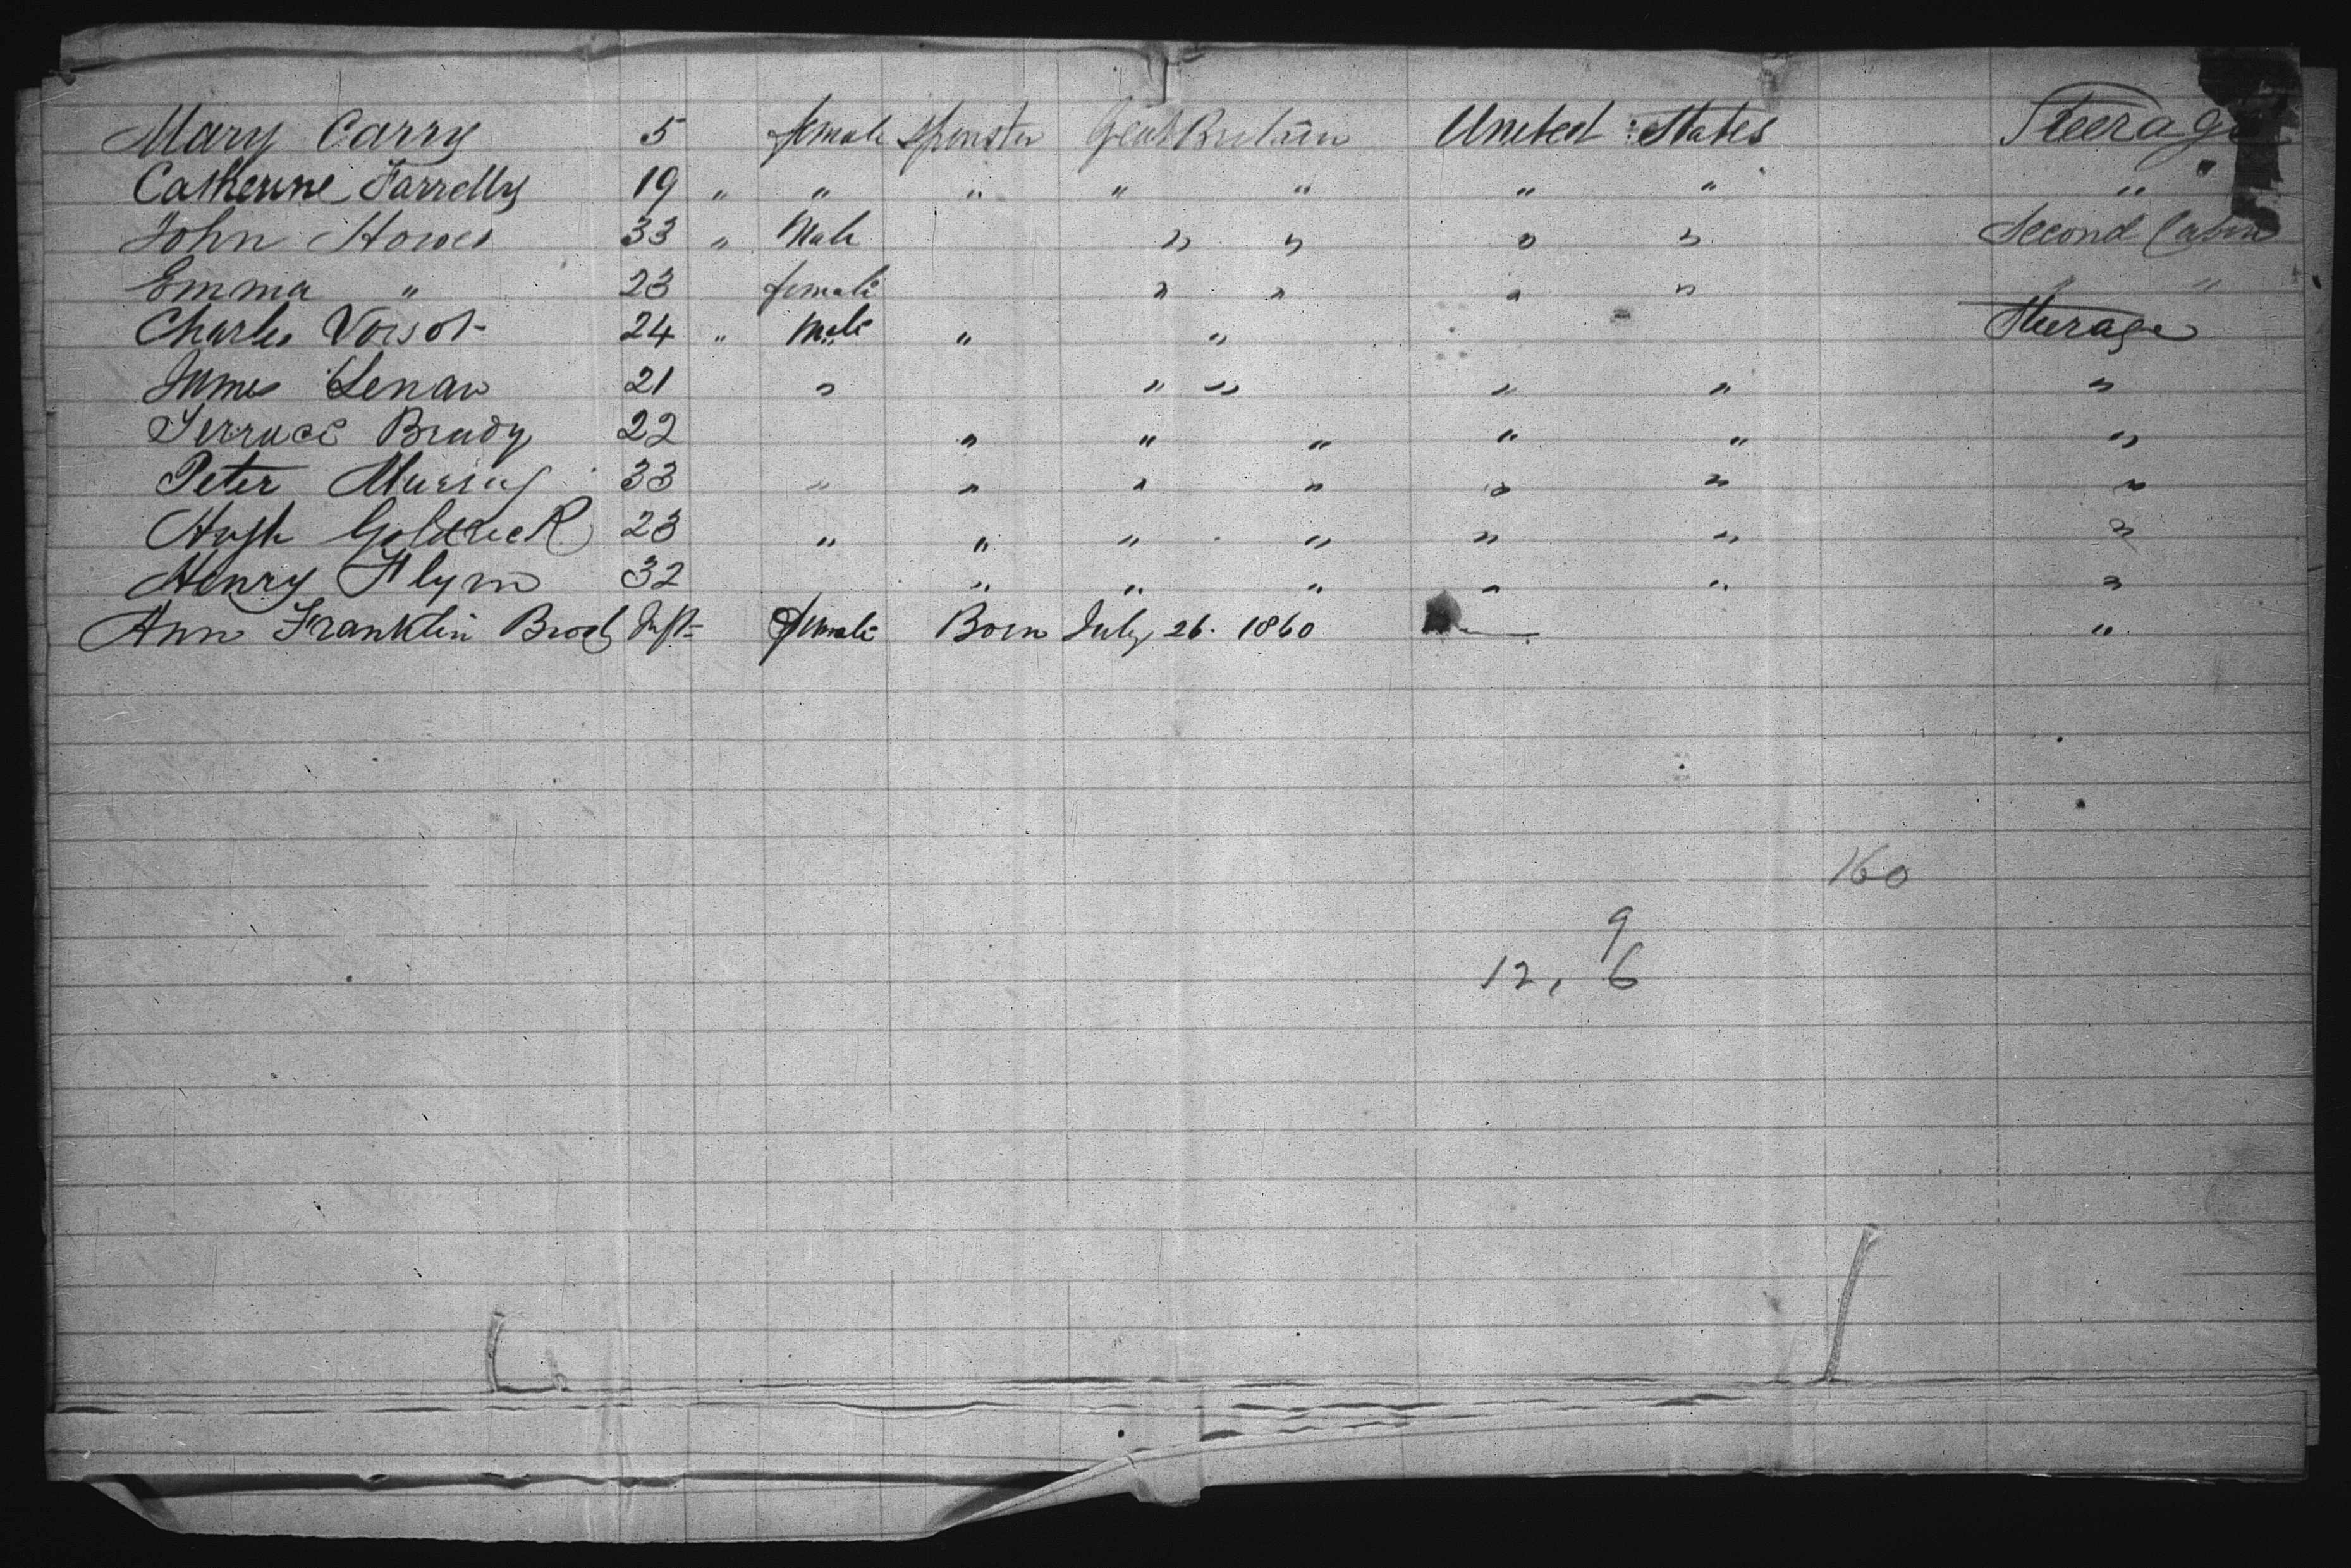 Mary Carry 5 female Spinster Great Britain United States Steerage
Catherine Farrelly 19 " " " " " " " "
John Howes 33 " Male " " " " Second Cabin
Emma " 23 female " " " " " "
Charles Voisot 24 " Male " " Steerage
James Lenan 21 " " " " " "
Terrace Brady 22 " " " " " "
Peter Murray 33 " " " " " " "
Hugh Goldrick 23 " " " " " " "
Henry Flynn 32 " " " " " "
Ann Franklin Inft female Born July 26. 1860 "
160
9
12, 6